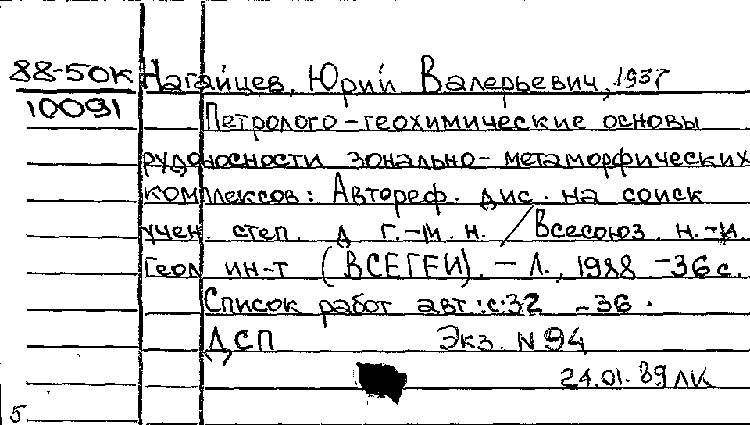 88-50к Нагайцев, Юрий Валерьевич, 1937
10091 Петролого-геохимические основы
рудоносности зонально-метаморфических
комплексов: Автореф. дис. на соиск
учен. степ. д г.-м. н. / Всесоюз. н.-и.
геол ин-т (ВСЕГЕИ). - Л., 1988 - 36 с.
Список работ авт.: с. 32 - 36.
ДСП Экз. N 94
24.01.89 ЛК
5